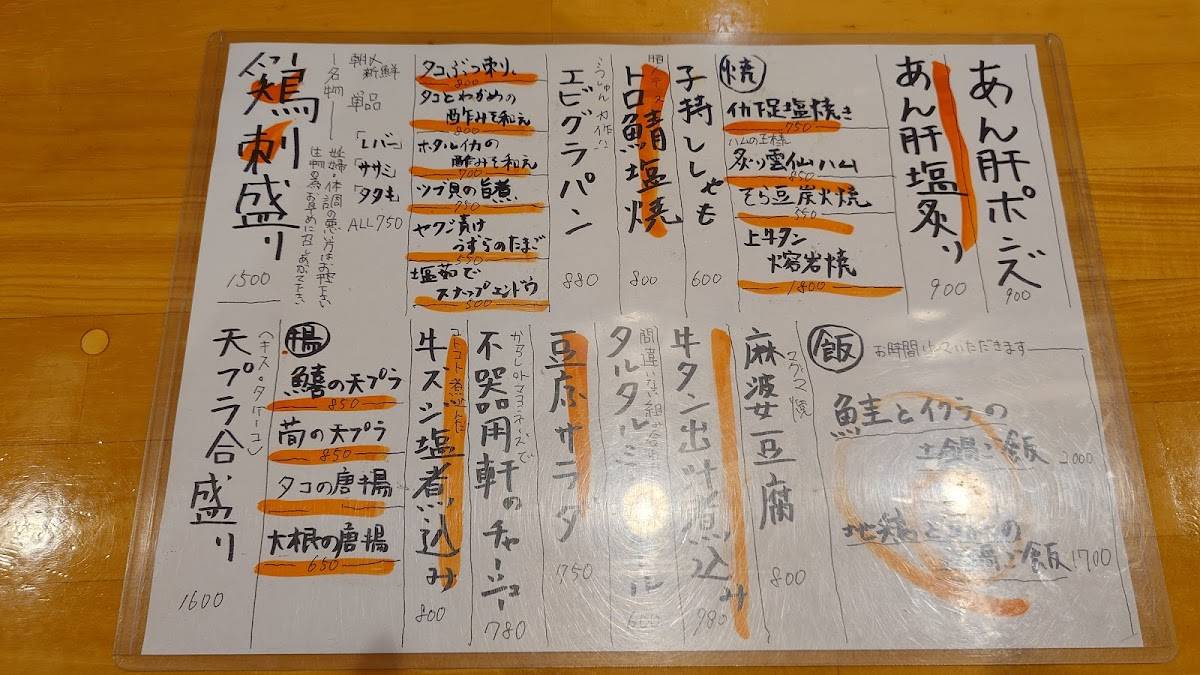 あん肝ポンズ
900
あん肝塩炙り
900
焼
イカ下足塩焼き
750
ハムの王様
炙り雲仙ハム
850
そら豆炭火焼
550
上牛タン
溶岩焼
1800
子持ししゃも
600
トロ鯖塩焼
800
エビグラパン
880
タコぶつ刺し
800
タコとわかめの
酢みそ和え
800
ホタルイカの
酢みそ和え
700
ツブ貝の旨煮
750
ヤクジ漬け
うずらのたまご
550
塩茹で
スナップエンドウ
500
朝〆
新鮮
名物
単品
「レバー」
「ササミ」
「タタキ」
ALL750
妊婦・体調の悪い方はお控え下さい
鶏刺盛り
1500
飯
お時間いただきます
鮭とイクラの
土鍋ご飯
2000
地鶏と
の
鍋ご飯
1700
マグマ焼
麻婆豆腐
800
牛タン出汁煮込み
980
間違いない組合せ
タルタル
600
豆腐サラダ
750
からしマヨネーズで
不器用軒のチャーシュー
780
コトコト煮込んだ
牛スジ塩煮込み
800
揚
鱚の天プラ
850
筍の天プラ
850
タコの唐揚
大根の唐揚
650
天プラ合盛り
1600